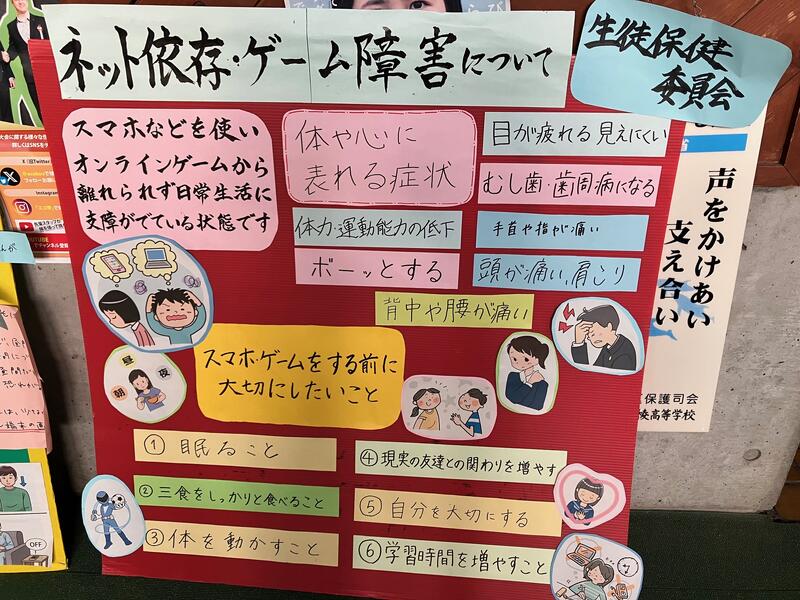 ネット依存・ゲーム障害について
生徒保健
委員会
スマホなどを使い
オンラインゲームから
離れられず日常生活に
支障がでている状態です
体や心に
表れる症状
目が疲れる 見えにくい
むし歯・歯周病になる
体力・運動能力の低下
手首や指が痛い
ボーッとする
頭が痛い、肩こり
背中や腰が痛い
スマホ・ゲームをする前に
大切にしたいこと
朝
昼
夜
① 眠ること
② 三食をしっかりと食べること
③ 体を動かすこと
④ 現実の友達との関わりを増やす
⑤ 自分を大切にする
⑥ 学習時間を増やすこと
声をかけあい
支え合い
保護司会
高等学校
Instagram
OFF